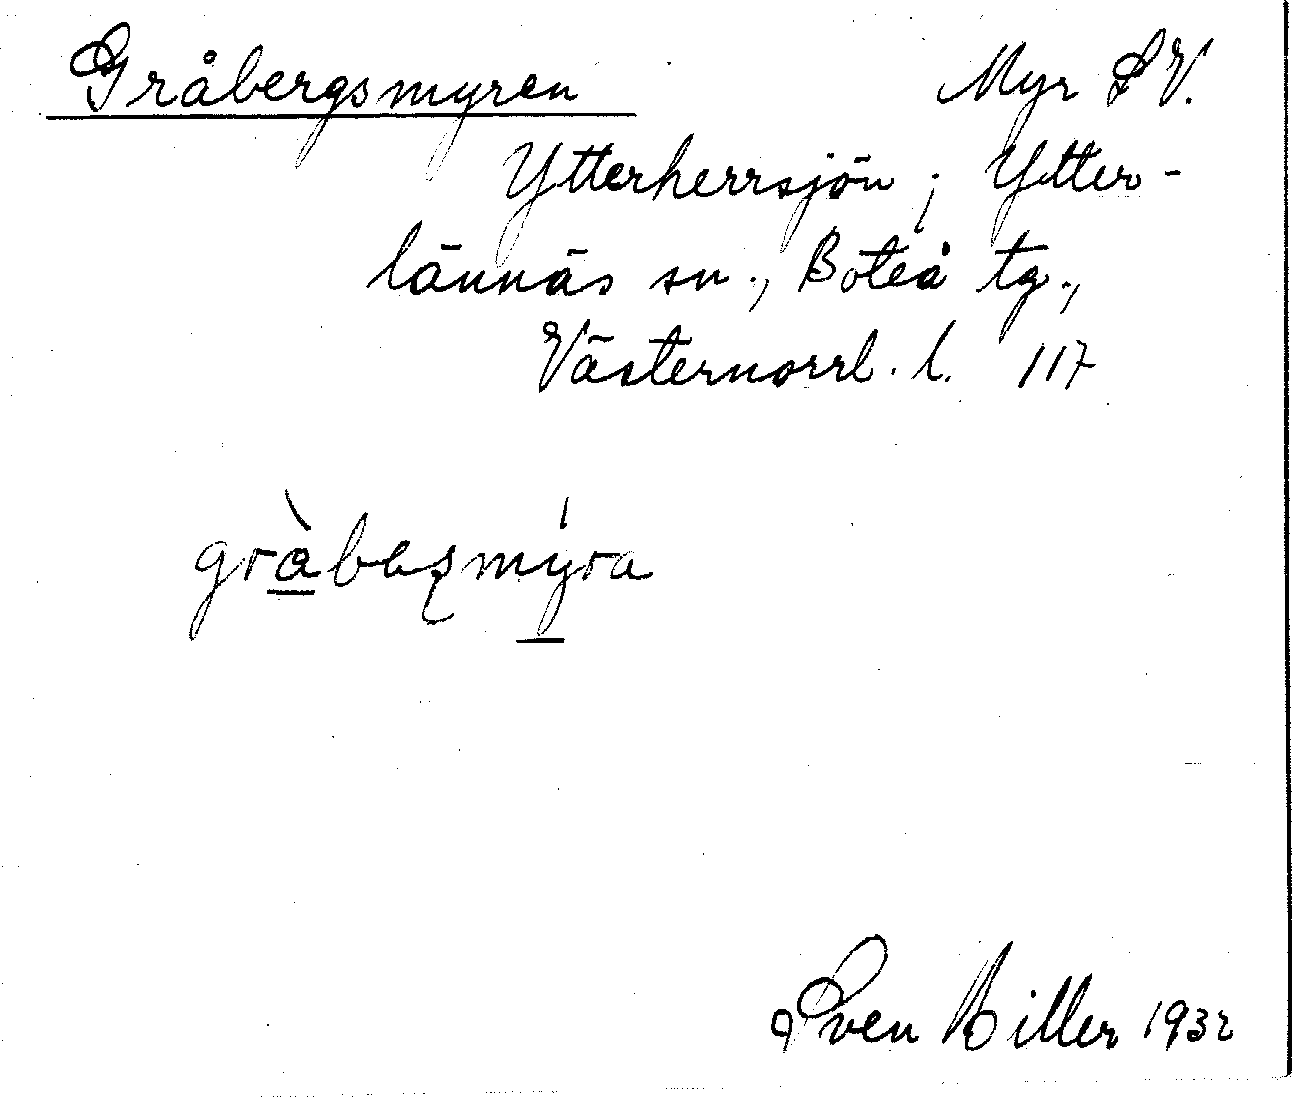 Gråbergsmyren Myr S V.
Ytterherrsjön; Ytter-
lännäs sn., Boteå tg.,
Västernorrl. l. 117
gràbesmýra
Sven Hiller 1932